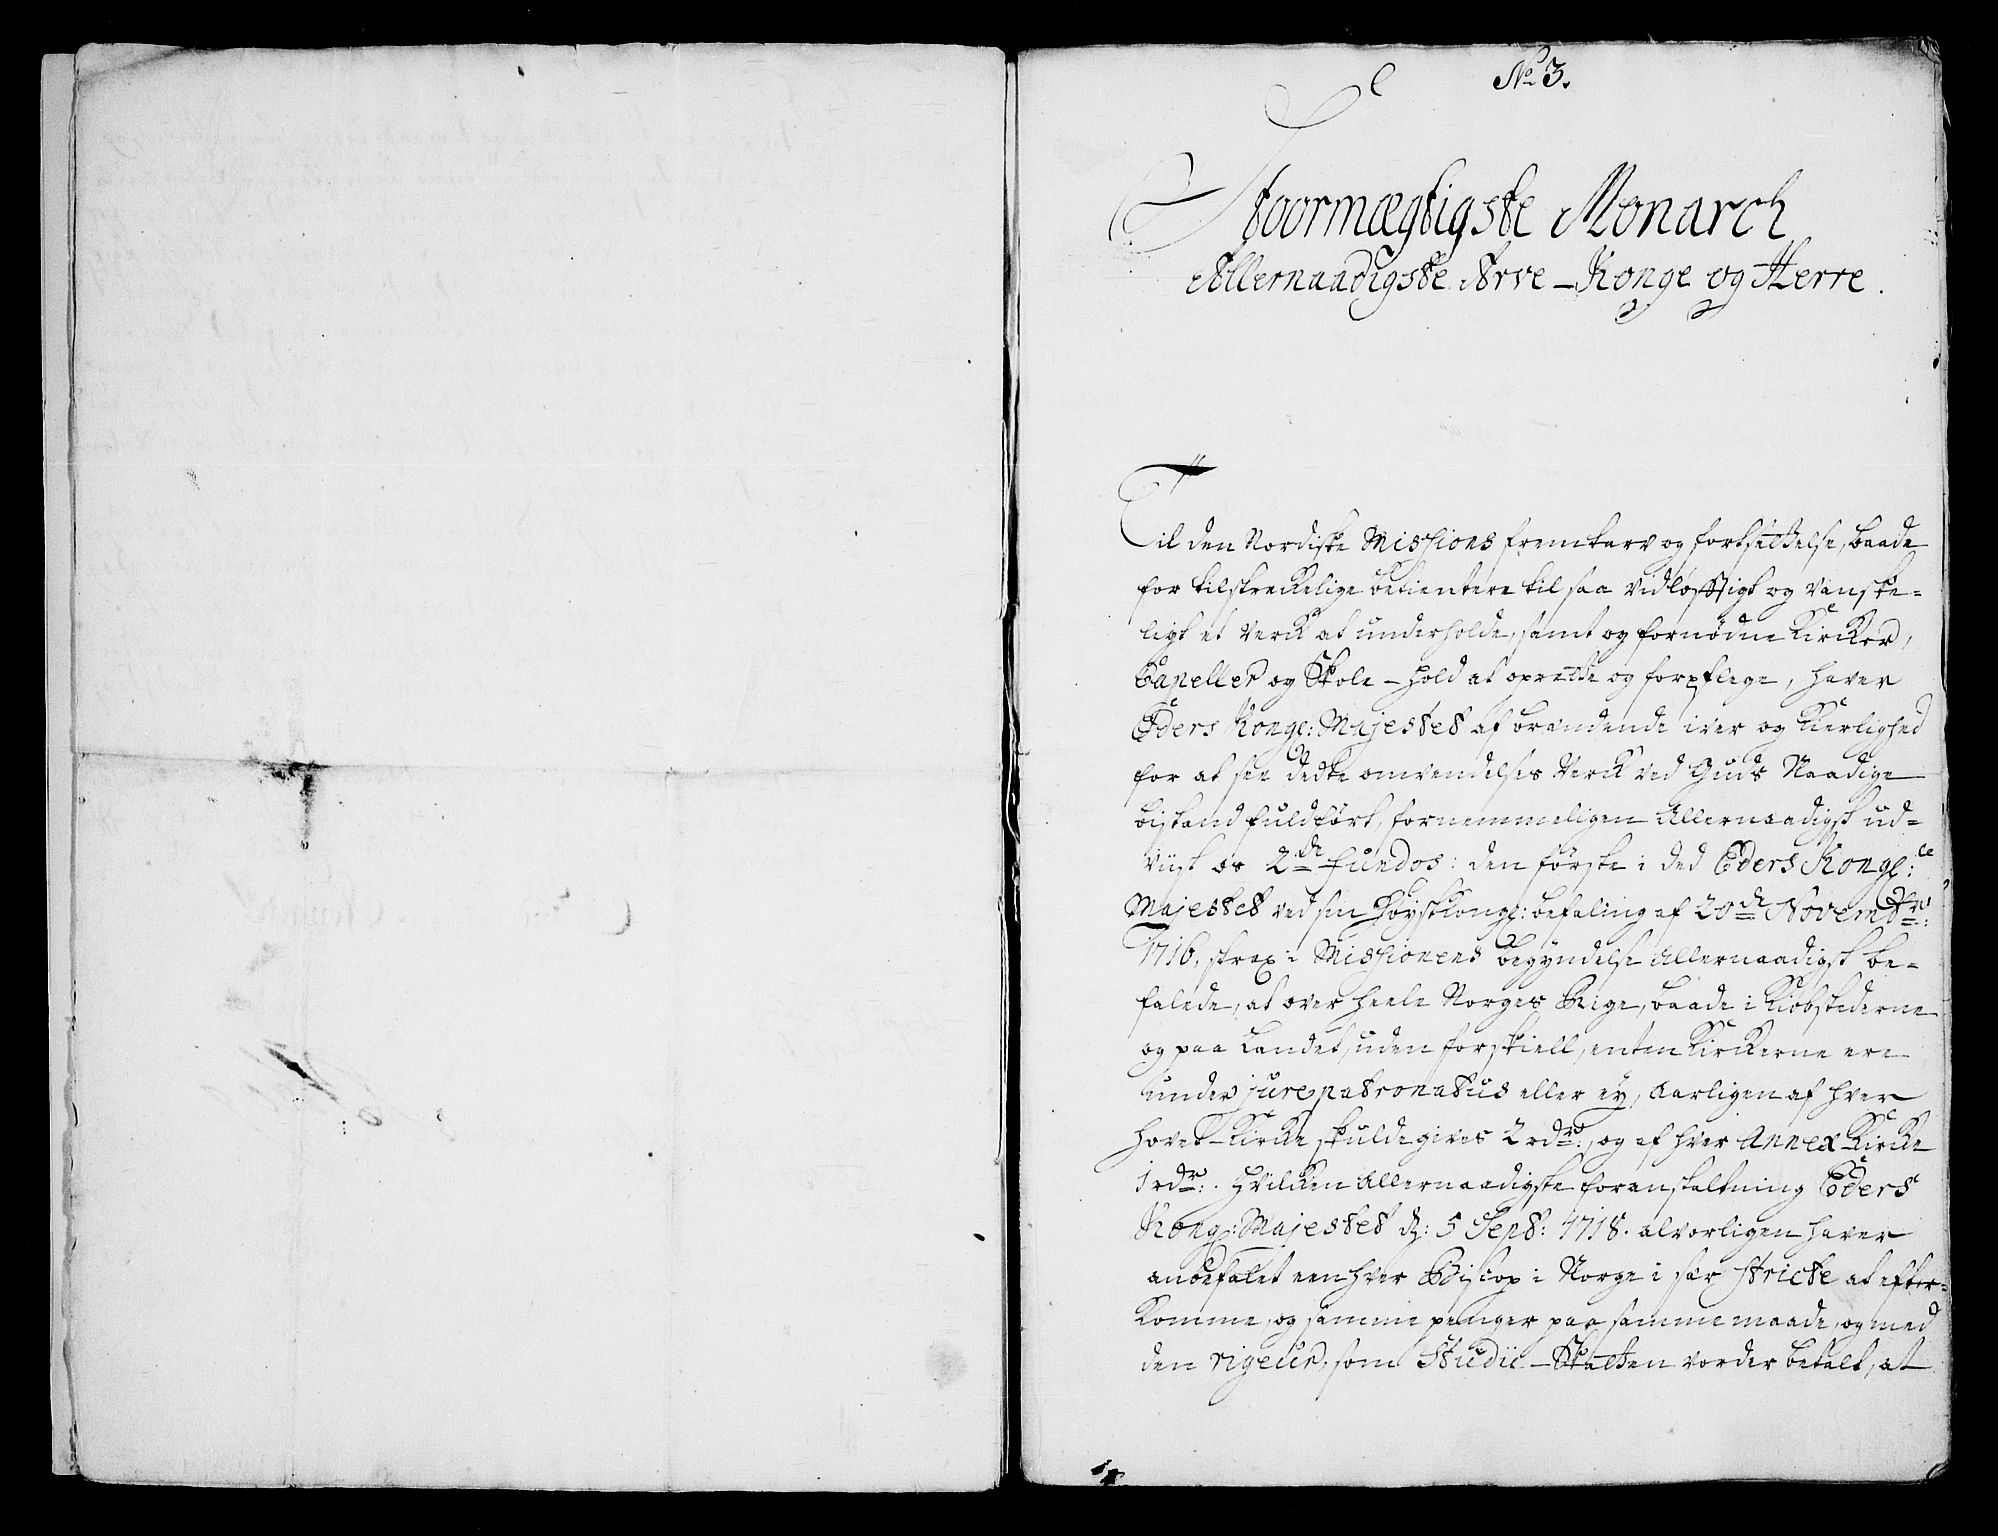 No 3.
Stoormægtigste Monarch
Allernaadigste Arve-Konge og Herre.
Til den Nordiske Missions fremtarv og fortsettelse, baade
for tilstreckelige betientere til saa vidløfftigt og vanske-
ligt et verck at underholde, samt og fornødne Kircker,
Capeller og Skole-hold at oprette og forpflege, haver
Eders Kongl: Majestet af brændende iver og Kierlighed
for at see dette omvendelses verck ved Guds Naadige
bistand fuldført, fornemmeligen Allernaadigst ud-
viist os 2de fundos: den første i ded Eders Kongl:
Majestet ved sin Høystkongl: befaling af 20de Novembr:
1716, strax i Missionens begyndelse Allernaadigst be-
falede, at over heele Norges Rige, baade i Kiøbstederne
og paa Landet, uden forskiell, enten Kirckerne ere
under jure patronatus eller ey, aarligen af hver
Hovet-Kircke skulde gives 2 rdr:, og af hver Annex Kircke
1 rdr:. Hvilcken Allernaadigste foranstaltning Eders
Kongl: Majestet d: 5 Sept: 1718. alvorligen haver
anbefalet een hver Biscop i Norge i sær stricte at efter-
komme, og samme penger paa samme maade, og med
den rigeur, som Studii-Skatten vorder betalt, at